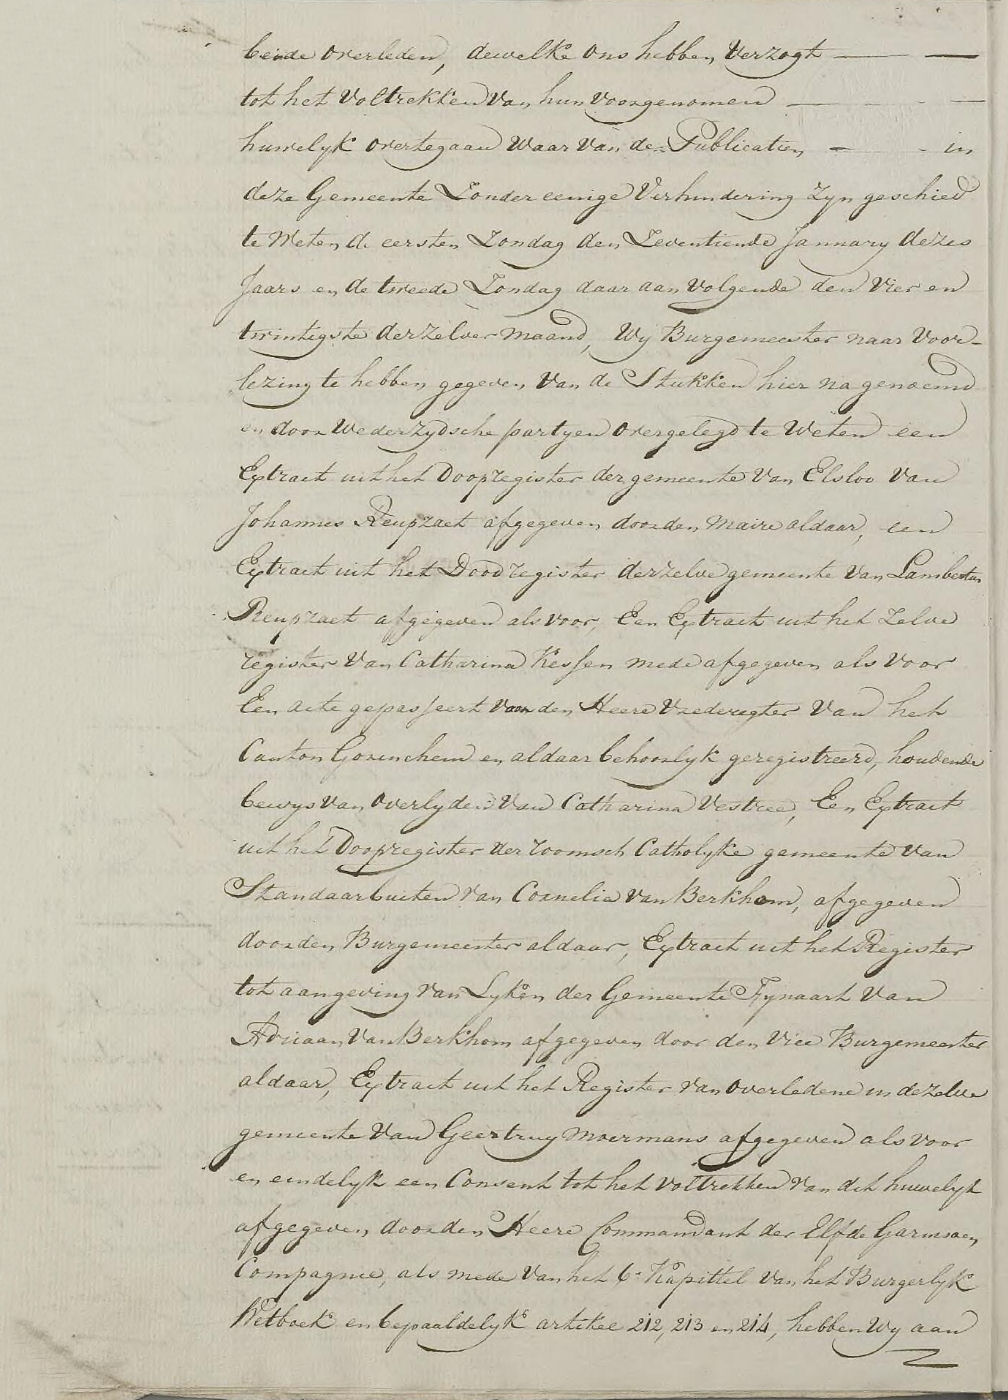 beide overleden, dewelke ons hebben Verzogt
tot het Voltrekken Van hun Voorgenomen
huwelyk overtegaan Waar Van de Publicatien in
deze Gemeente Zonder eenige Verhindering Zyn geschied
te Weten de eersten Zondag den Zeventiende January dezes
Jaars en de tweede Zondag daar aan Volgende den Vier en
twintigste derzelver maand, Wy Burgemeester naar Voor-
lezing te hebben gegeven Van de Stukken hier na genoemd
en door Wederzydsche partyen overgelegd te Weten een
Extract uit het Doopregister der gemeente Van Elsloo Van
Johannes Reupzaet afgegeven door den Maire aldaar, een
Extract uit het Doodregister derzelve gemeente Van Lambertus
Reupzaet afgegeven als voor, Een Extract uit het Zelve
register Van Catharina Kessen mede afgegeven als Voor
Een acte gepasseert Van den Heere Vrederegter Van het
Canton Gorinchem en aldaar behoorlyk geregistreerd, houdende
bewys Van Overlyden Van Catharina Vestree, Een Extract
uit het Doopregister der roomsch Catholyke gemeente Van
Standaarbuiten van Cornelia Van Berkhom, afgegeven
door den Burgemeester aldaar, Extract uit het Register
tot aangeving van Lyken der Gemeente Fynaart Van
Adriaan Van Berkhom afgegeven door den Vice Burgemeester
aldaar, Extract uit het Register van Overledene in dezelve
gemeente Van Geertruy Moermans afgegeven als voor
en eindelyk een Consent tot het voltrekken van dit huwelyk
afgegeven door den Heere Commandant der Elfde Garnisoen
Compagnie, als mede Van het 6e Kapittel Van het Burgerlyk
Wetboek en bepaaldelyk artikel 212, 213 en 214, hebben Wy aan